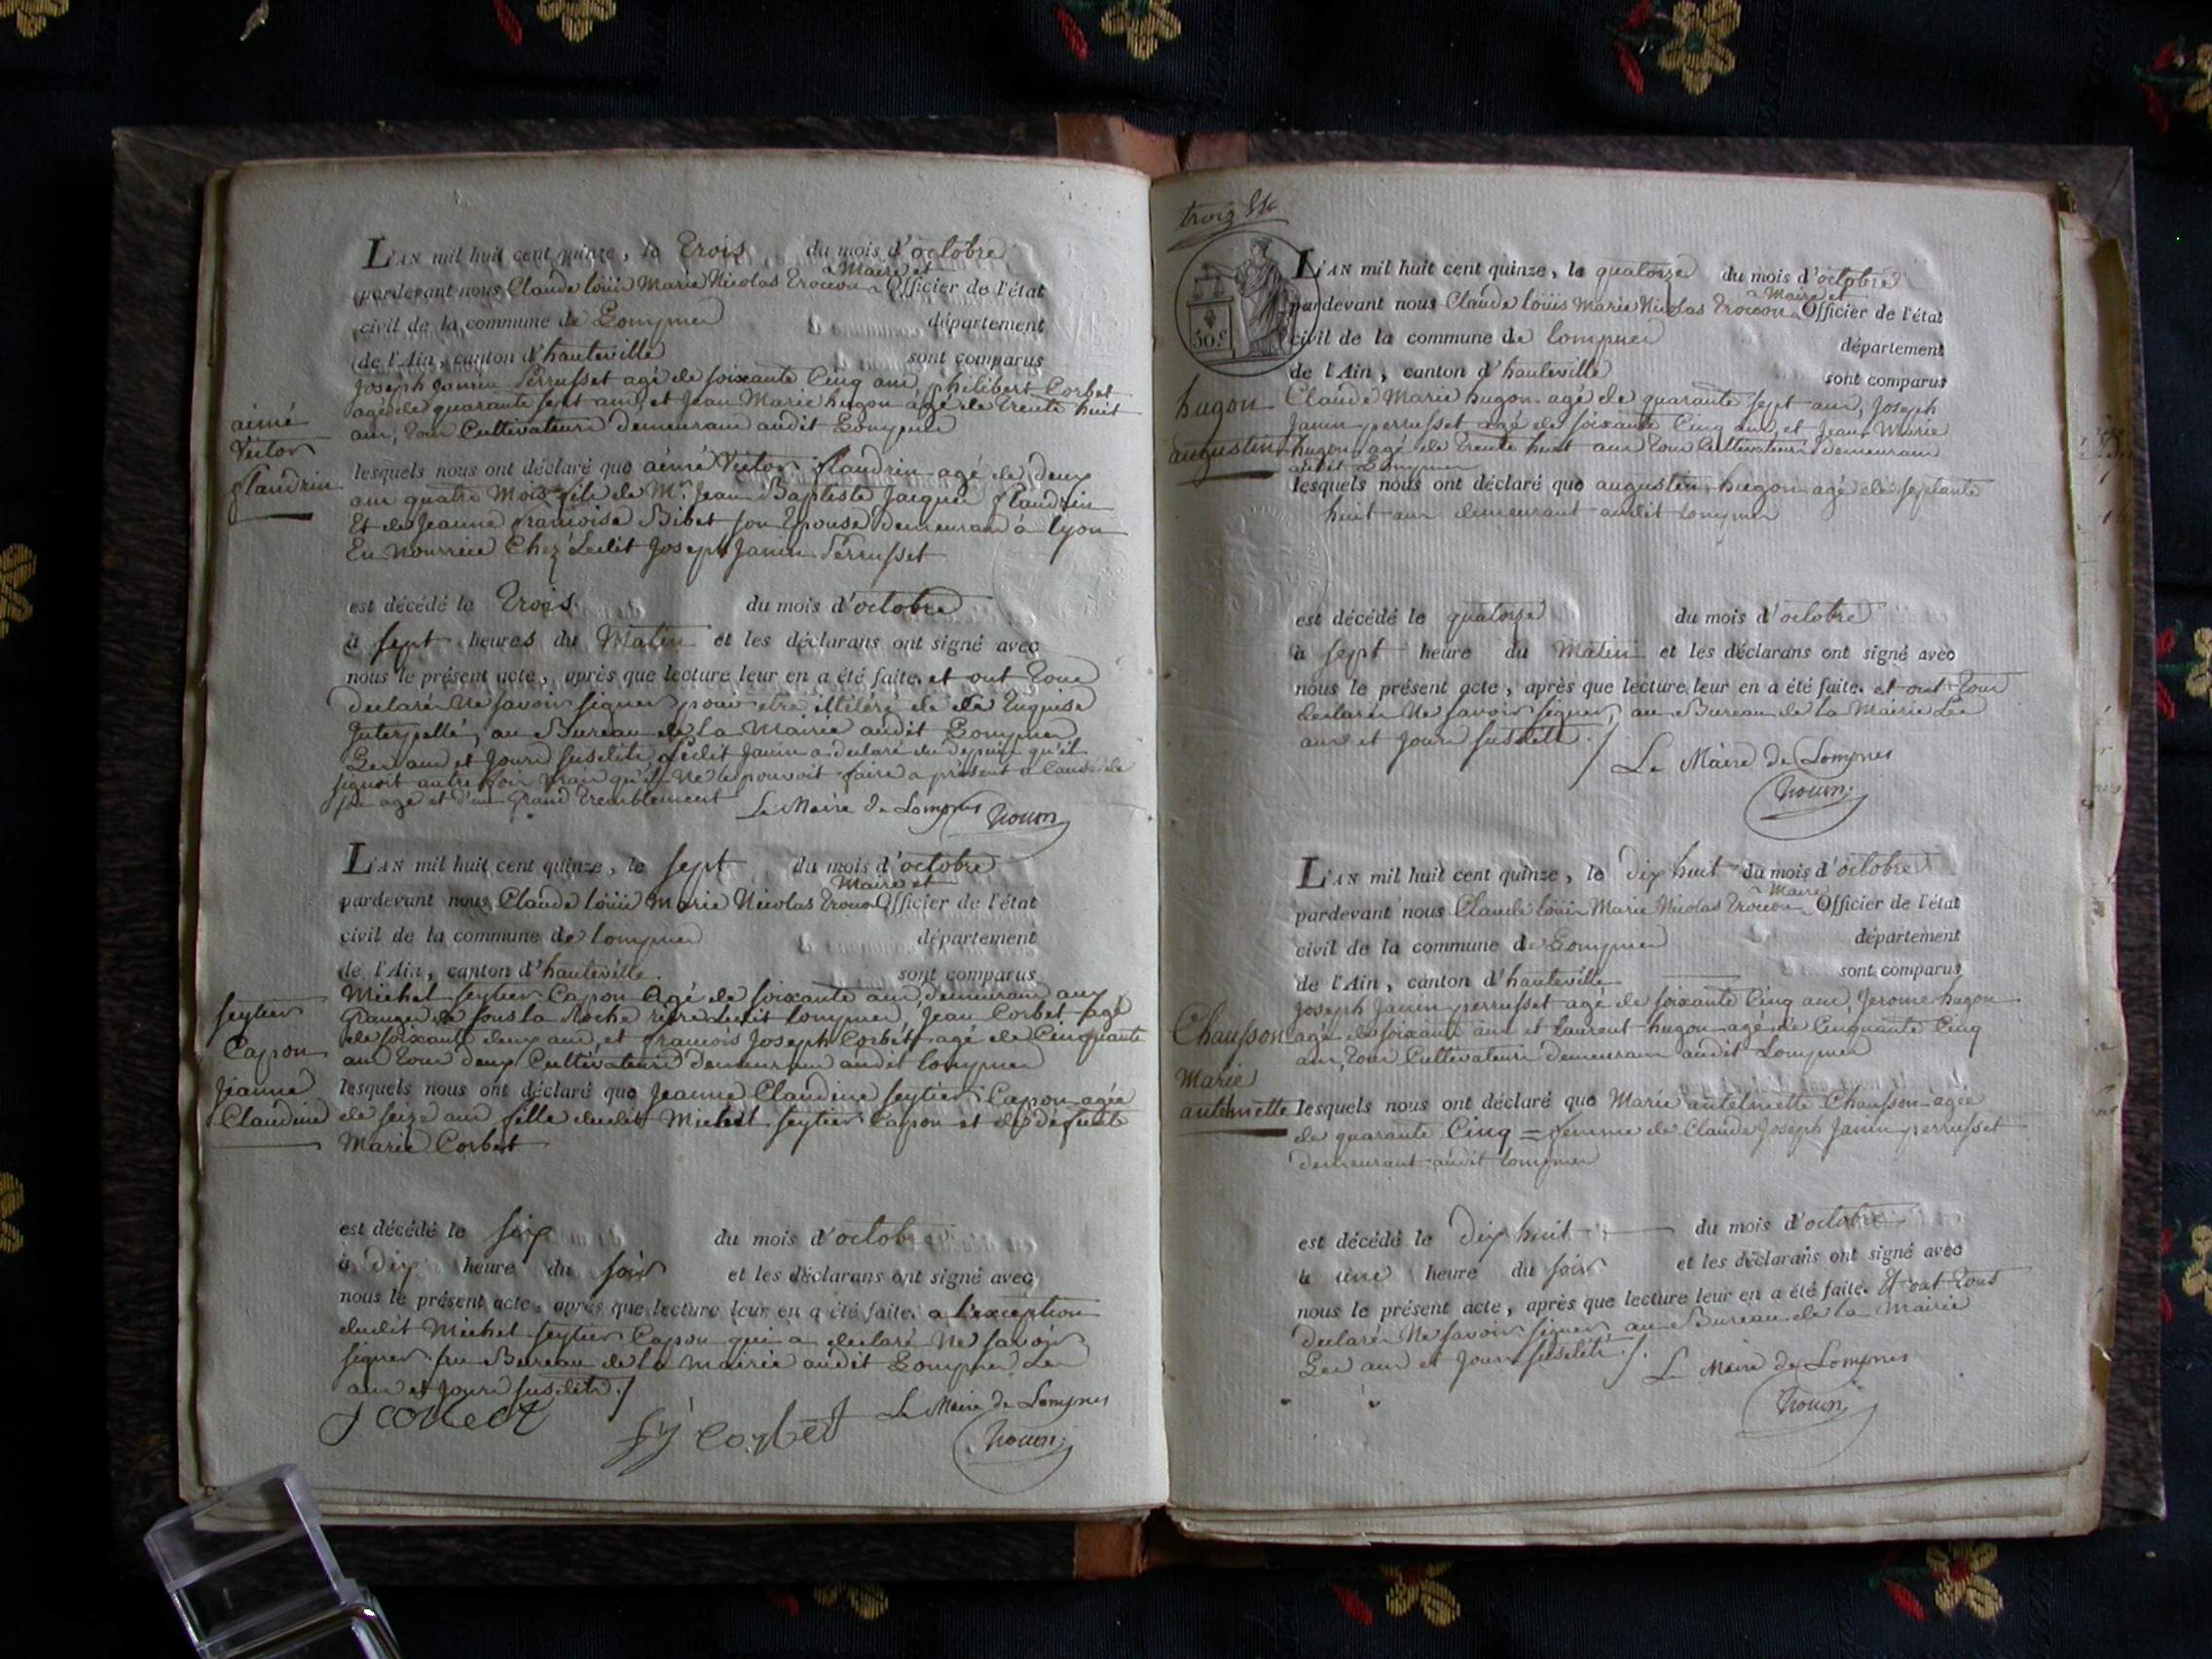 L'AN mil huit cent quinze, le trois du mois d'octobre
Maire et
pardevant nous Claude Loüis Marie Nicolas Officier de l'état
civil de la commune de Lompnes département
de l'Ain, canton d'hauteville sont comparus
Joseph Janin Perrusset agé de soixante Cinq ans, philibert Corbet
agé de quarante sept ans, et Jean Marie hugon agé de trente huit
ans, tous Cultivateurs demeurans audit Lompnes
aimé
Victor
flandrin
lesquels nous ont déclaré que aimé Victor flandrin agé de deux
ans quatre Mois fils de Mr. Jean Baptiste Jacques flandrin
Et de Jeanne françoise Bibet son Epouse demeurans à lyon
En Nourrice Chez Ledit Joseph Janin Perrusset
est décédé le trois du mois d'octobre
à sept heures du Matin et les déclarans ont signé avec
nous le présent acte, après que lecture leur en a été faite. et ont tous
declarés Ne savoir signer pour etre illitérés de ce Enquis
Interpellés, au Bureau de la Mairie audit Lompnes
Les ans et Jours susdits, Ledit Janin a declaré du depuis qu'il
signoit autre fois mais qu'il Ne le pouvoit faire a présent a Cause de
son age et d'un Grand tremblement Le Maire de Lompnes
L'AN mil huit cent quinze, le sept du mois d'octobre
Maire et
pardevant nous Claude Loüis Marie Nicolas Officier de l'état
civil de la commune de lompnes département
de l'Ain, canton d'hauteville. sont comparus
Michel seytier Capon Agé de soixante ans, demeurans aux
Granges de sous la Roche rière Ledit lompnes, Jean Corbet agé
de soixante deux ans, et francois Joseph Corbet agé de Cinquante
ans tous deux Cultivateurs demeurans audit lompnes
seytier
Capon
Jeanne
Claudine
lesquels nous ont déclaré que Jeanne Claudine seytier Capon agée
de seize ans fille dudit Michel seytier Capon et de défunte
Marie Corbet
est décédé le six du mois d'octobre
à dix heure du soir et les déclarans ont signé avec
nous le présent acte, après que lecture leur en a été faite. a l'exception
dudit Michel seytier Capon qui a declaré Ne savoir
signer. au Bureau de la mairie audit Lompnes Les
ans et Jours susdits ./
j corbet fj corbet Le Maire de Lompnes
L'AN mil huit cent quinze, le quatorze du mois d'octobre
Maire et
pardevant nous Claude Loüis Marie Nicolas Officier de l'état
50.c
civil de la commune de lompnes département
de l'Ain, canton d'hauteville sont comparus
hugon
augustin
Claude Marie hugon agé de quarante sept ans, Joseph
Janin perrusset agé de soixante Cinq ans, et Jean Marie
hugon agé de trente huit ans tous Cultivateurs demeurans
audit Lompnes
lesquels nous ont déclaré que augustin hugon agé de septante
huit ans demeurant audit lompnes
est décédé le quatorze du mois d'octobre
à sept heure du Matin et les déclarans ont signé avec
nous le présent acte, après que lecture leur en a été faite. et ont tous
declarés Ne savoir signer, au Bureau de la Mairie Les
ans et Jours susdits ./ Le Maire de Lompnes
L'AN mil huit cent quinze, le dix huit du mois d'octobre
Maire
pardevant nous Claude Loüis Marie Nicolas Officier de l'état
civil de la commune de Lompnes département
de l'Ain, canton d'hauteville sont comparus
Joseph Janin perrusset agé de soixante Cinq ans, Jerome hugon
agé de soixante ans et Laurent hugon agé de Cinquante Cinq
ans, tous Cultivateurs demeurans audit Lompnes
Chausson
Marie
antelmette
lesquels nous ont déclaré que Marie antelmette Chausson agée
de quarante Cinq = femme de Claude Joseph Janin perrusset
demeurant audit lompnes
est décédé le dix huit du mois d'octobre
à une heure du soir et les déclarans ont signé avec
nous le présent acte, après que lecture leur en a été faite. Et ont tous
declarés Ne savoir signer au Bureau de la Mairie
Les ans et Jours susdits ./. Le Maire de Lompnes